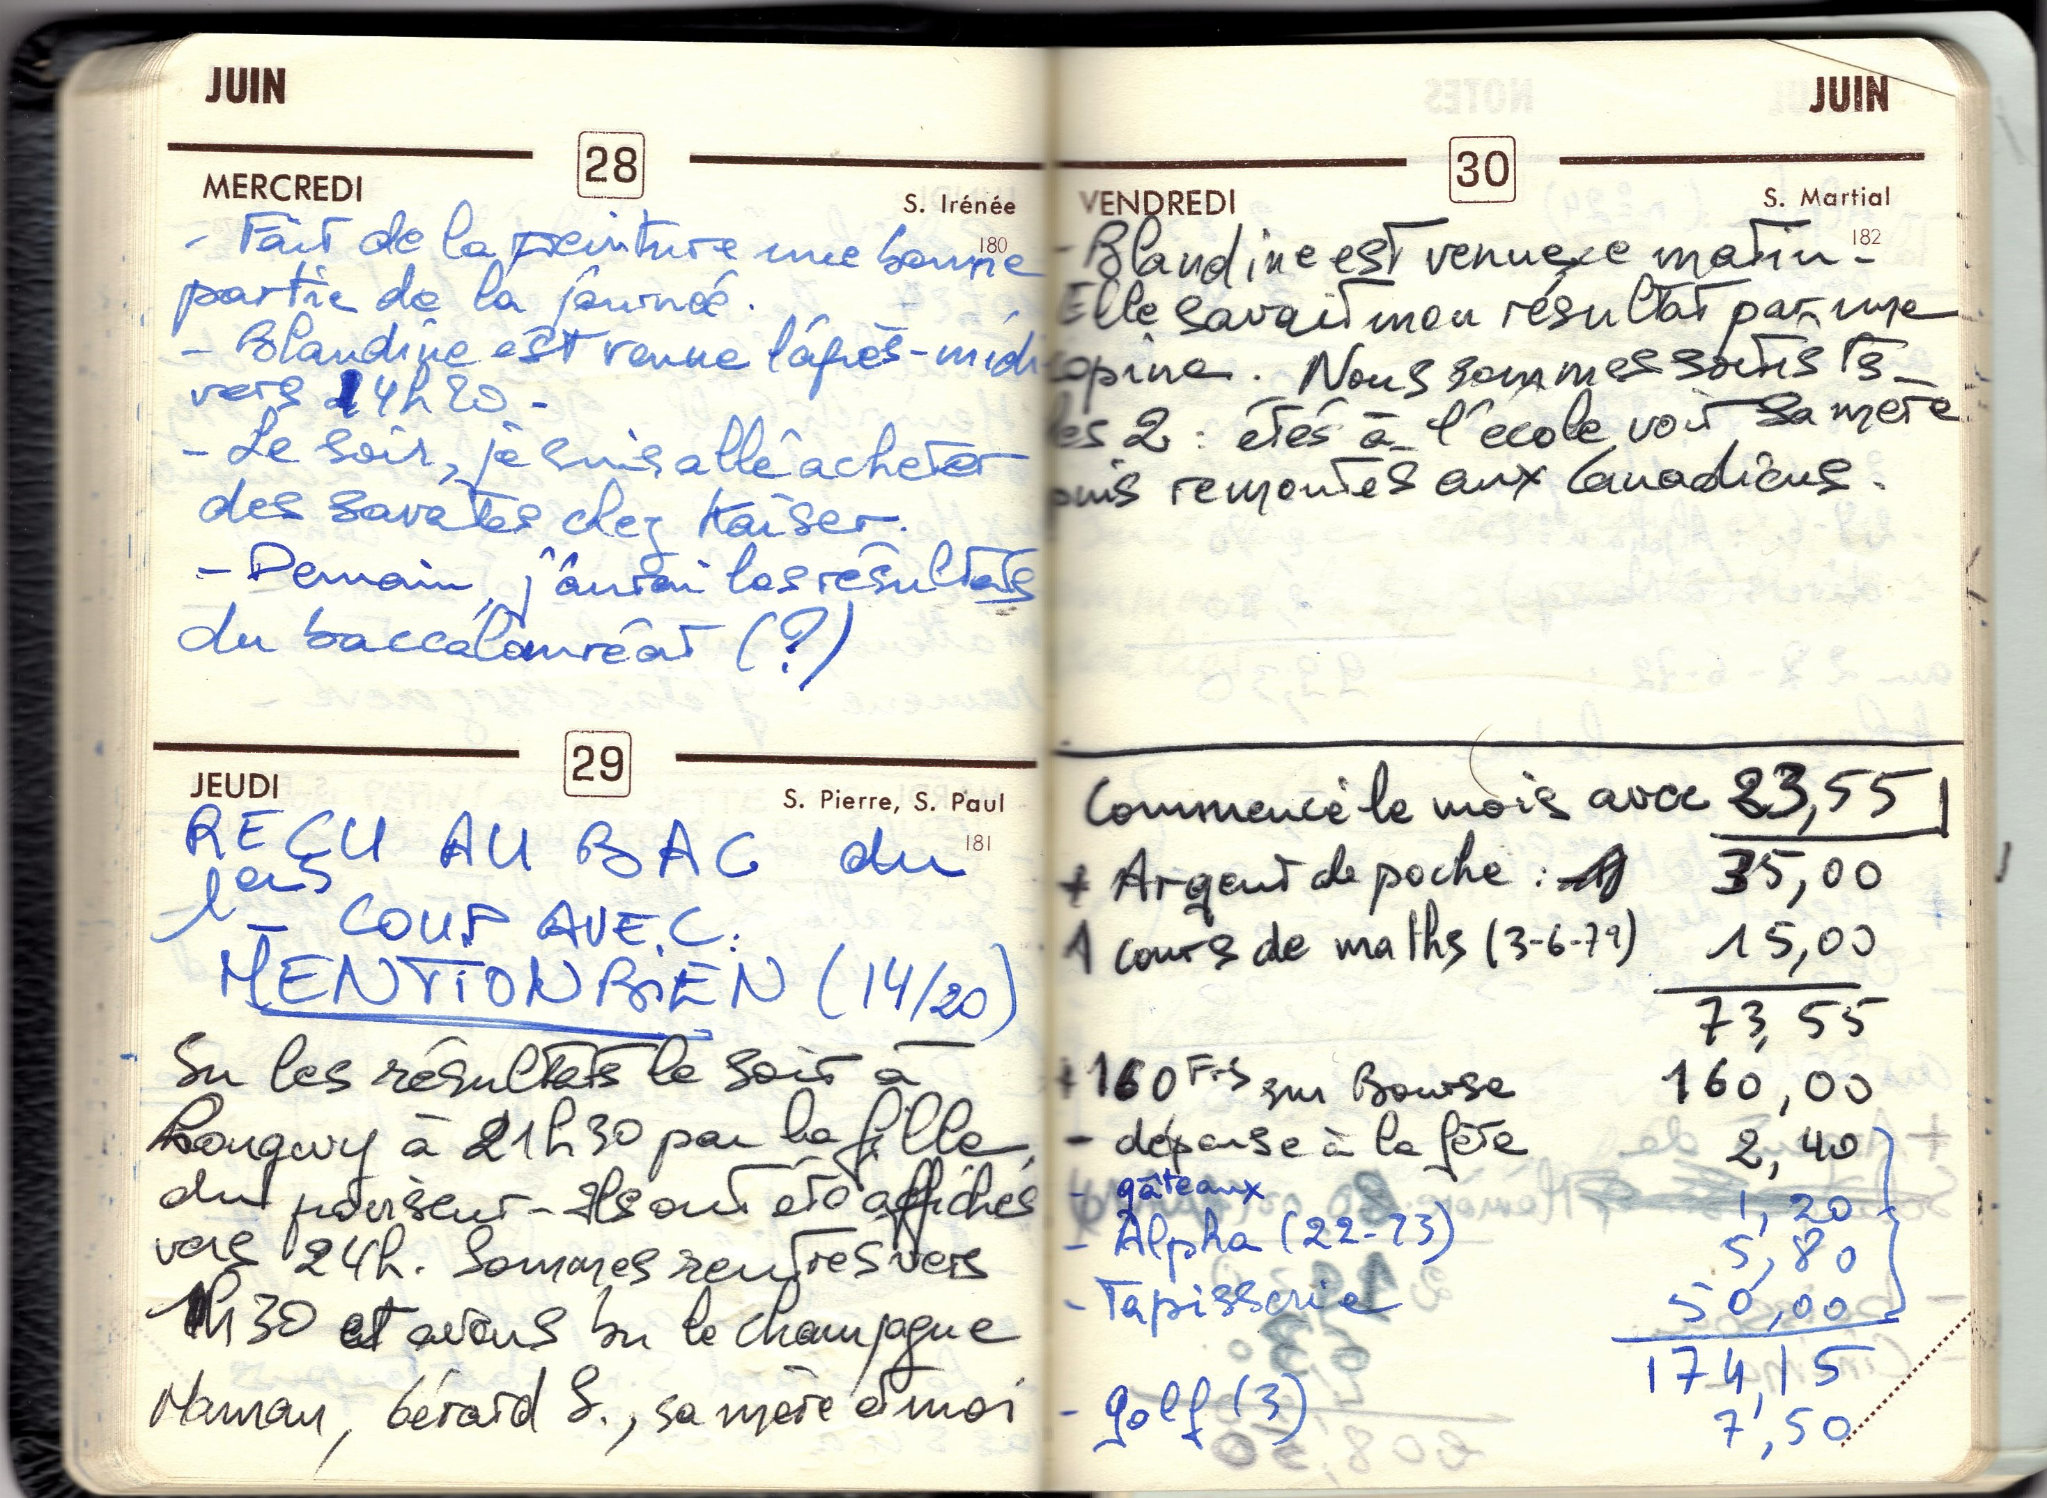 JUIN
28
MERCREDI
S. Irénée
180
- Fait de la peinture une bonne
partie de la journée.
- Blandine est venue l'après-midi
vers 14h20 -
- Le soir, je suis allé acheter
des savates chez Kaiser.
- Demain, j'aurai les résultats
du baccalauréat (?)
29
JEUDI
S. Pierre, S. Paul
181
REÇU AU BAC du
1er
COUP AVEC:
MENTION BIEN (14/20)
Su les résultats le soir à
Longwy à 21h30 par la fille
du - Ils ont été affichés
vers 24h. Sommes rentrés vers
1h30 et avons bu le champagne
Maman, Gérard S., sa mère et moi
JUIN
30
VENDREDI
S. Martial
182
- Blandine est venue ce matin -
Elle savait mon résultat par une
copine. Nous sommes sortis ts
les 2 : étés à l'école voir sa mère
puis remontés aux Canadiens.
Commencé le mois avec 23,55
+ Argent de poche : 35,00
1 cours de maths (3-6-72) 15,00
73,55
+ 160 Frs sur Bourse 160,00
- dépense à la fête 2,40
- gâteaux 1,20
- Alpha (22-23) 5,80
- Tapisserie 50,00
174,15
- golf (3) 7,50